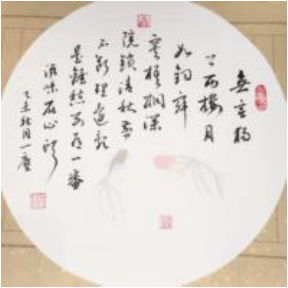 無言獨
上西樓月
如鉤寂
寞梧桐深
院鎖清秋剪
不斷理還亂
是離愁別有一番
滋味在心頭
乙未秋月一塵